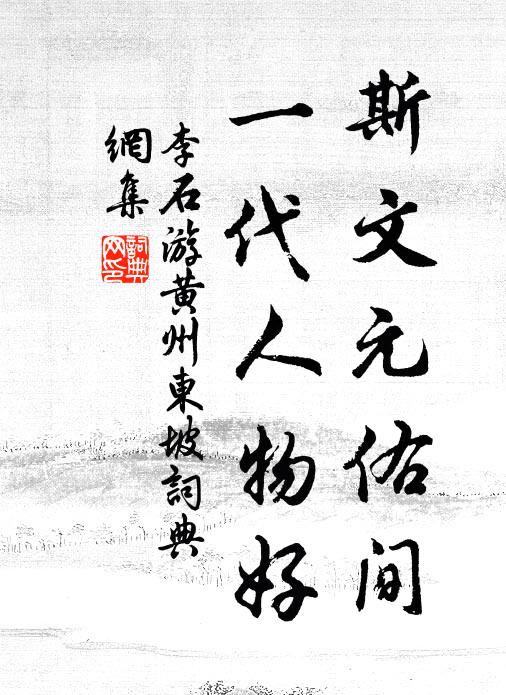 斯文元佑间
一代人物好
李石游黄州東坡詞典
網集
詞典
网印